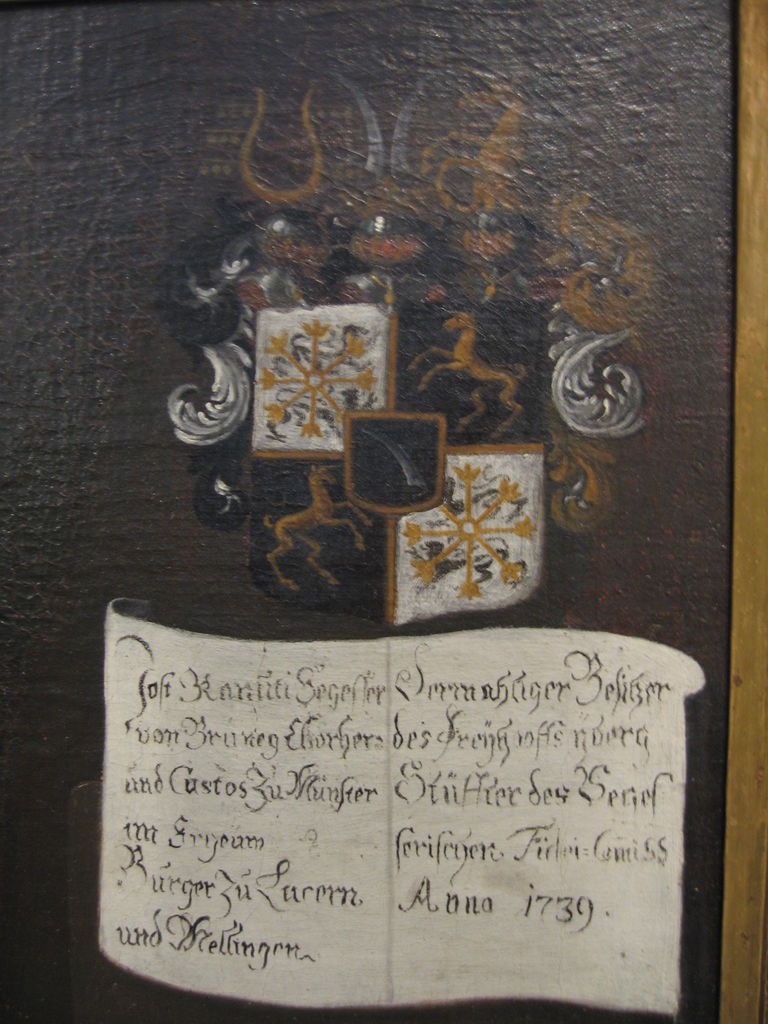 Jost Ranuti Segesser
von Bruneg Chorher=
und Custos Zu Münster
im Ergeüw
Burger Zu Lucern,
und Mellingen
Dermahliger Besitzer
des Freÿhoffs
Stüffter des Seges
serischen Fidei=Comiss
Anno 1739.